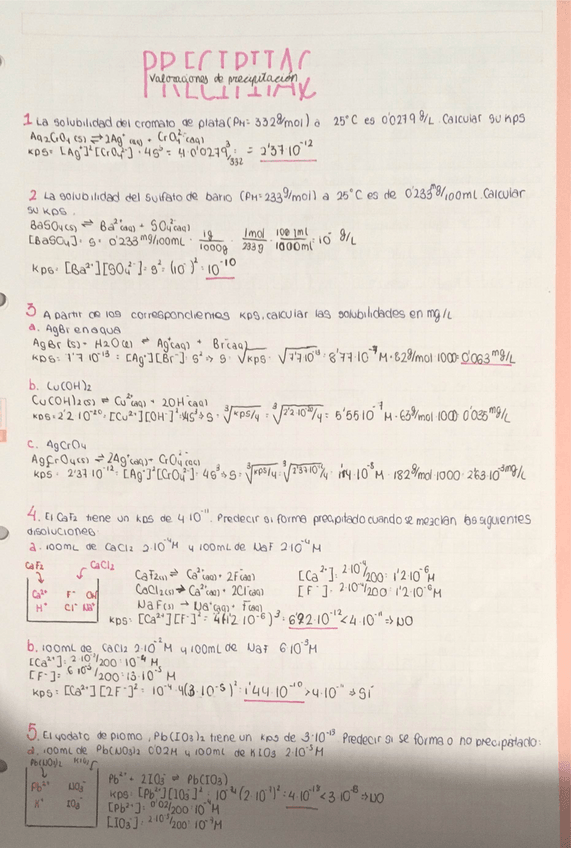 PRECIPITAR
Valoraciones de precipitación
1 La solubilidad del cromato de plata (PM= 332 g/mol) a 25°C es 0'0279 g/L. Calcular su kps
Ag₂CrO₄(s) ⇌ 2Ag⁺(aq) + CrO₄²⁻(aq)
KPS = [Ag⁺]²[CrO₄²⁻] = 4S³ = 4 0'0279/332 ³ = 2'37·10⁻¹²
2 La solubilidad del sulfato de bario (PM=233 g/mol) a 25°C es de 0'233 mg/100mL. Calcular
su KPS.
BaSO₄(s) ⇌ Ba²⁺(aq) + SO₄²⁻(aq)
[BaSO₄] = S = 0'233 mg/100mL · 1g/1000g · 1mol/233g · 100 1ml/1000ml = 10⁻⁵ g/L
KPS = [Ba²⁺][SO₄²⁻] = S² = (10⁻⁵)² = 10⁻¹⁰
3 A partir de los correspondientes KPS, calcular las solubilidades en mg/L
a. AgBr en agua
AgBr(s) + H₂O(l) ⇌ Ag⁺(aq) + Br⁻(aq)
KPS = 7'7·10⁻¹³ = [Ag⁺][Br⁻] = S² → S = √KPS = √7'7·10⁻¹³ = 8'77·10⁻⁷ M · 82 g/mol · 1000 = 0'063 mg/L
b. Cu(OH)₂
Cu(OH)₂(s) ⇌ Cu²⁺(aq) + 2OH⁻(aq)
KPS = 2'2·10⁻²⁰ = [Cu²⁺][OH⁻]² = 4S³ → S = ³√KPS/4 = ³√2'2·10⁻²⁰/4 = 5'55·10⁻⁷ M · 63 g/mol · 1000 = 0'035 mg/L
c. AgCrO₄
AgCrO₄(s) ⇌ 2Ag⁺(aq) + CrO₄⁻(aq)
KPS = 2'37·10⁻¹² = [Ag⁺]²[CrO₄²⁻] = 4S³ → S = ³√KPS/4 = M · 182 g/mol · 1000 =
4. El CaF₂ tiene un KPS de 4·10⁻¹¹. Predecir si forma precipitado cuando se mezclan las siguientes
disoluciones:
a. 100mL de CaCl₂ 2·10⁻⁴M y 100mL de NaF 2·10⁻⁴M
CaF₂ CaCl₂
Ca²⁺ F⁻ OH⁻
H⁺ Cl⁻ Na⁺
CaF₂(s) ⇌ Ca²⁺(aq) + 2F⁻(aq)
CaCl₂(s) ⇌ Ca²⁺(aq) + 2Cl⁻(aq)
NaF(s) → Na⁺(aq) + F⁻(aq)
[Ca²⁺] = 2·10⁻⁴/200 = 1'2·10⁻⁶ M
[F⁻] = 2·10⁻⁴/200 = 1'2·10⁻⁶ M
KPS = [Ca²⁺][F⁻]² = 4(1'2·10⁻⁶)³ = 6'22·10⁻¹² < 4·10⁻¹¹ → NO
b. 100mL de CaCl₂ 2·10⁻²M y 100mL de NaF 6·10⁻³M
[Ca²⁺] = 2·10⁻²/200 = 10⁻⁴ M
[F⁻] = 6·10⁻³/200 = M
KPS = [Ca²⁺][2F⁻]² = 10⁻⁴·4(3·10⁻⁵)² = 1'44·10⁻¹⁰ > 4·10⁻¹¹ → SÍ
5. El yodato de plomo, Pb(IO₃)₂ tiene un KPS de 3·10⁻¹³ Predecir si se forma o no precipitado:
a. 100mL de Pb(NO₃)₂ 0'02M y 100mL de KIO₃ 2·10⁻³M
Pb(NO₃)₂ KIO₃
Pb²⁺ NO₃⁻
K⁺ IO₃⁻
Pb²⁺ + 2IO₃⁻ ⇌ Pb(IO₃)
KPS = [Pb²⁺][IO₃⁻]² = 10⁻⁴ (2·10⁻⁷)² = 4·10⁻¹⁸ < 3·10⁻⁸ → NO
[Pb²⁺] = 0'02/200 = 10⁻⁴ M
[IO₃⁻] = 2·10⁻³/200 = 10⁻⁵ M